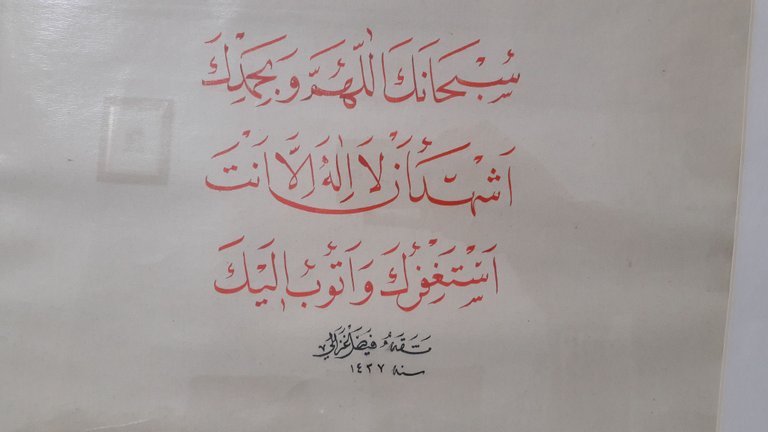 سُبْحَانَكَ اللّٰهُمَّ وَبِحَمْدِكَ
اَشْهَدُ اَنْ لَا اِلٰهَ اِلَّا اَنْتَ
اَسْتَغْفِرُكَ وَاَتُوبُ اِلَيْكَ
فيصل غزالي
سنه ١٤٣٧